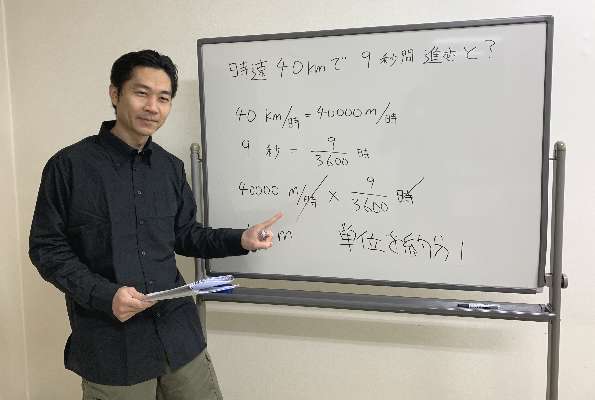 時速 40kmで 9秒間 進むと?
40 km/時 = 40000m/時
9 秒 = 9/3600 時
40000 m/時 × 9/3600 時
m 単位を約分!